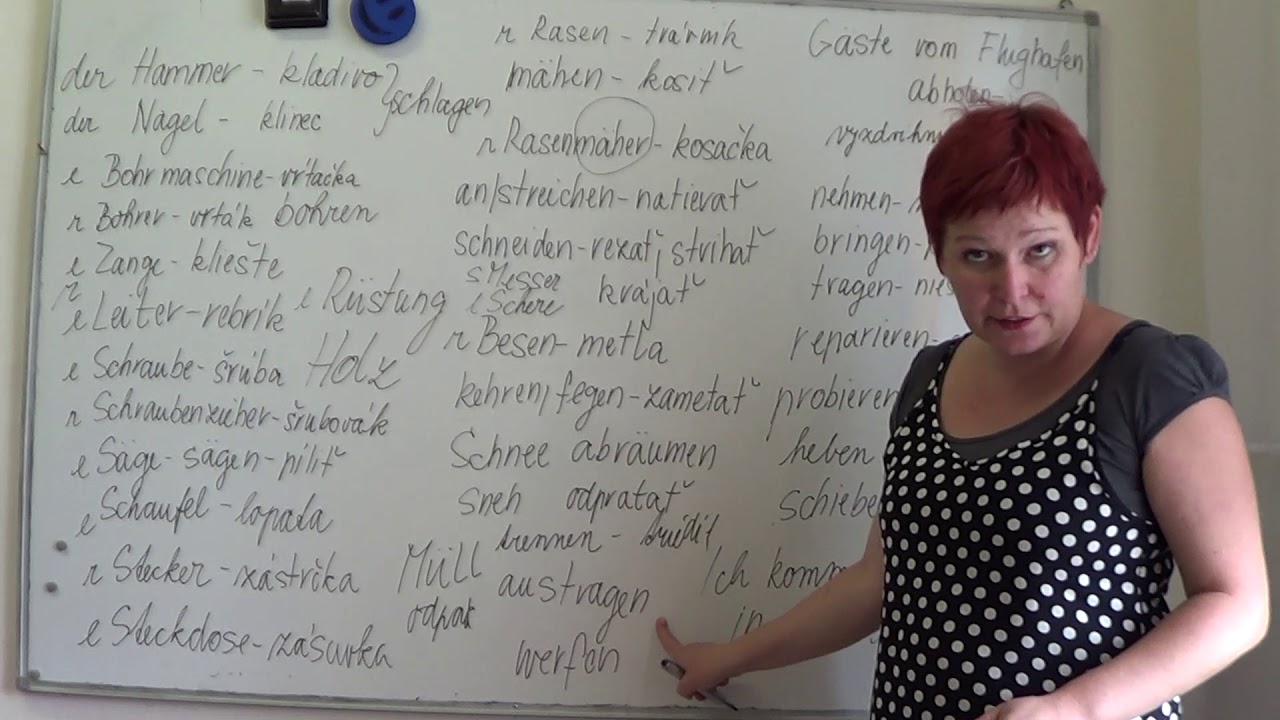 der Hammer - kladivo
der Nagel - klinec
schlagen
e Bohrmaschine - vŕtačka
r Bohrer - vrták bohren
e Zange - kliešte
r
e Leiter - rebrík e Rüstung
e Schraube - šrúba Holz
r Schraubenzieher - šrubovák
e Säge - sägen - píliť
e Schaufel - lopata
r Stecker - zástrčka
e Steckdose - zásuvka
r Rasen - trávnik
mähen - kosiť
r Rasenmäher - kosačka
an/streichen - natierať
schneiden - rezať, strihať
s Messer
e Schere
krájať
r Besen - metla
kehren, fegen - zametať
Schnee abräumen
sneh odpratať
trennen - triediť
Müll austragen
odpad
werfen
Gäste vom Flughafen
abholen -
nehmen -
bringen -
tragen -
reparieren -
probieren
heben
schiebe
Ich komm
in